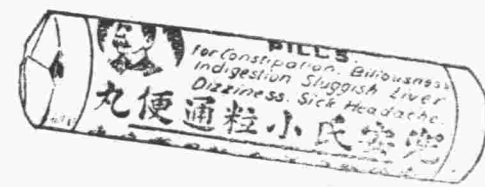 PILLS.
for Constipation, Biliousness
Indigestion Sluggish Liver
Dizziness, Sick Headache.
兜安氏小粒通便丸